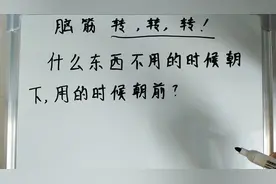 脑筋 转,转,转!
什么东西不用的时候朝
下,用的时候朝前?